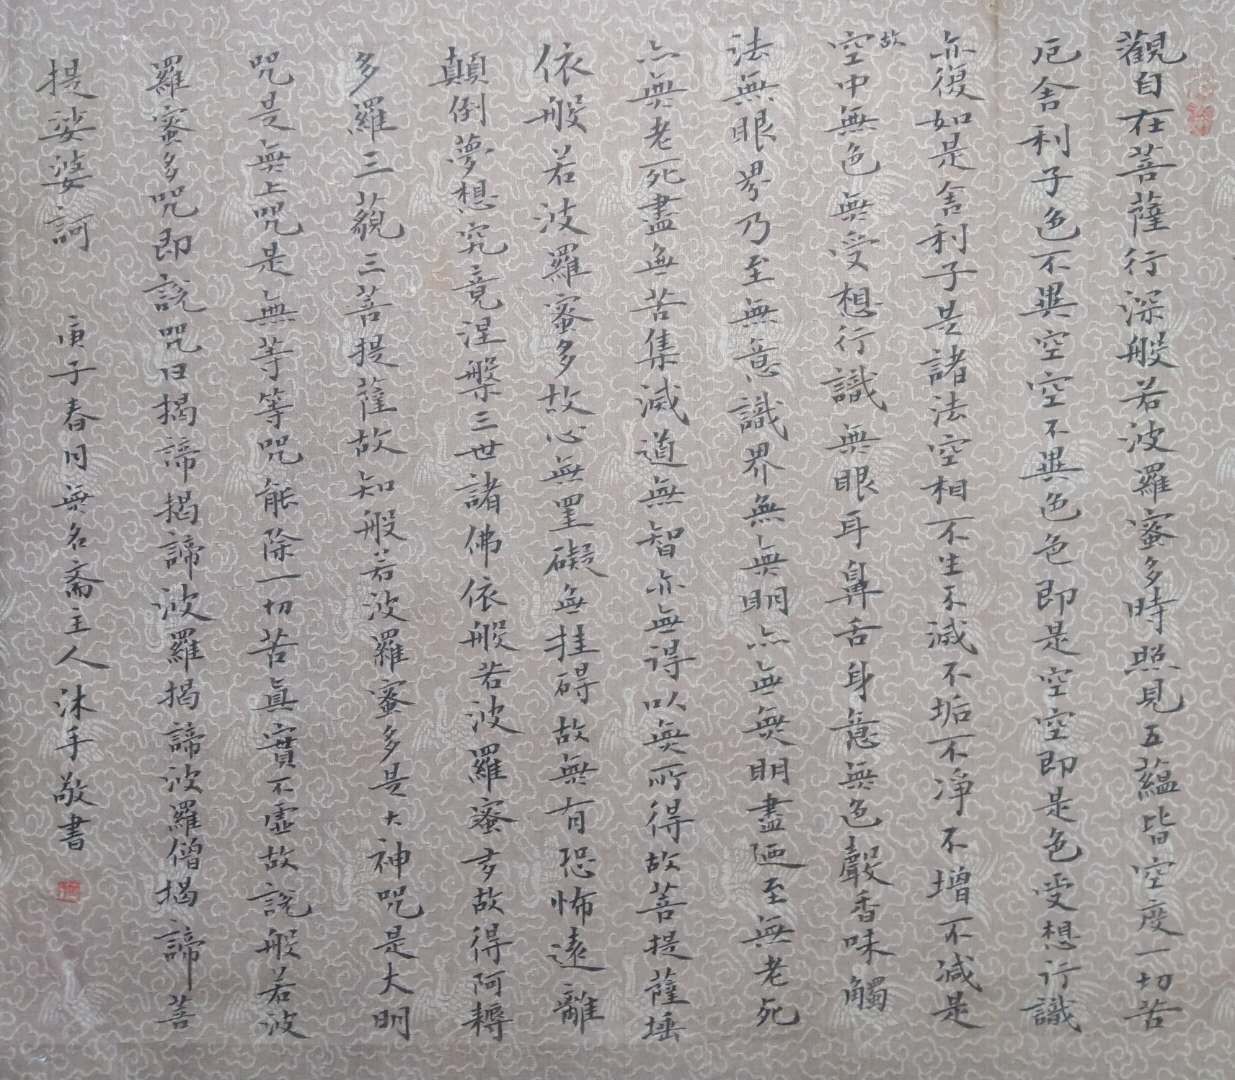 觀自在菩薩行深般若波羅蜜多時照見五蘊皆空度一切苦
厄舍利子色不異空空不異色色即是空空即是色受想行識
亦復如是舍利子是諸法空相不生不滅不垢不淨不增不減是
故
空中無色無受想行識無眼耳鼻舌身意無色聲香味觸
法無眼界乃至無意識界無無明亦無無明盡乃至無老死
亦無老死盡無苦集滅道無智亦無得以無所得故菩提薩埵
依般若波羅蜜多故心無罣礙無挂碍故無有恐怖遠離
顛倒夢想究竟涅槃三世諸佛依般若波羅蜜多故得阿耨
多羅三藐三菩提薩故知般若波羅蜜多是大神咒是大明
咒是無上咒是無等等咒能除一切苦真實不虛故說般若波
羅蜜多咒即說咒曰揭諦揭諦波羅揭諦波羅僧揭諦菩
提娑婆訶
庚子春月無名齋主人沐手敬書